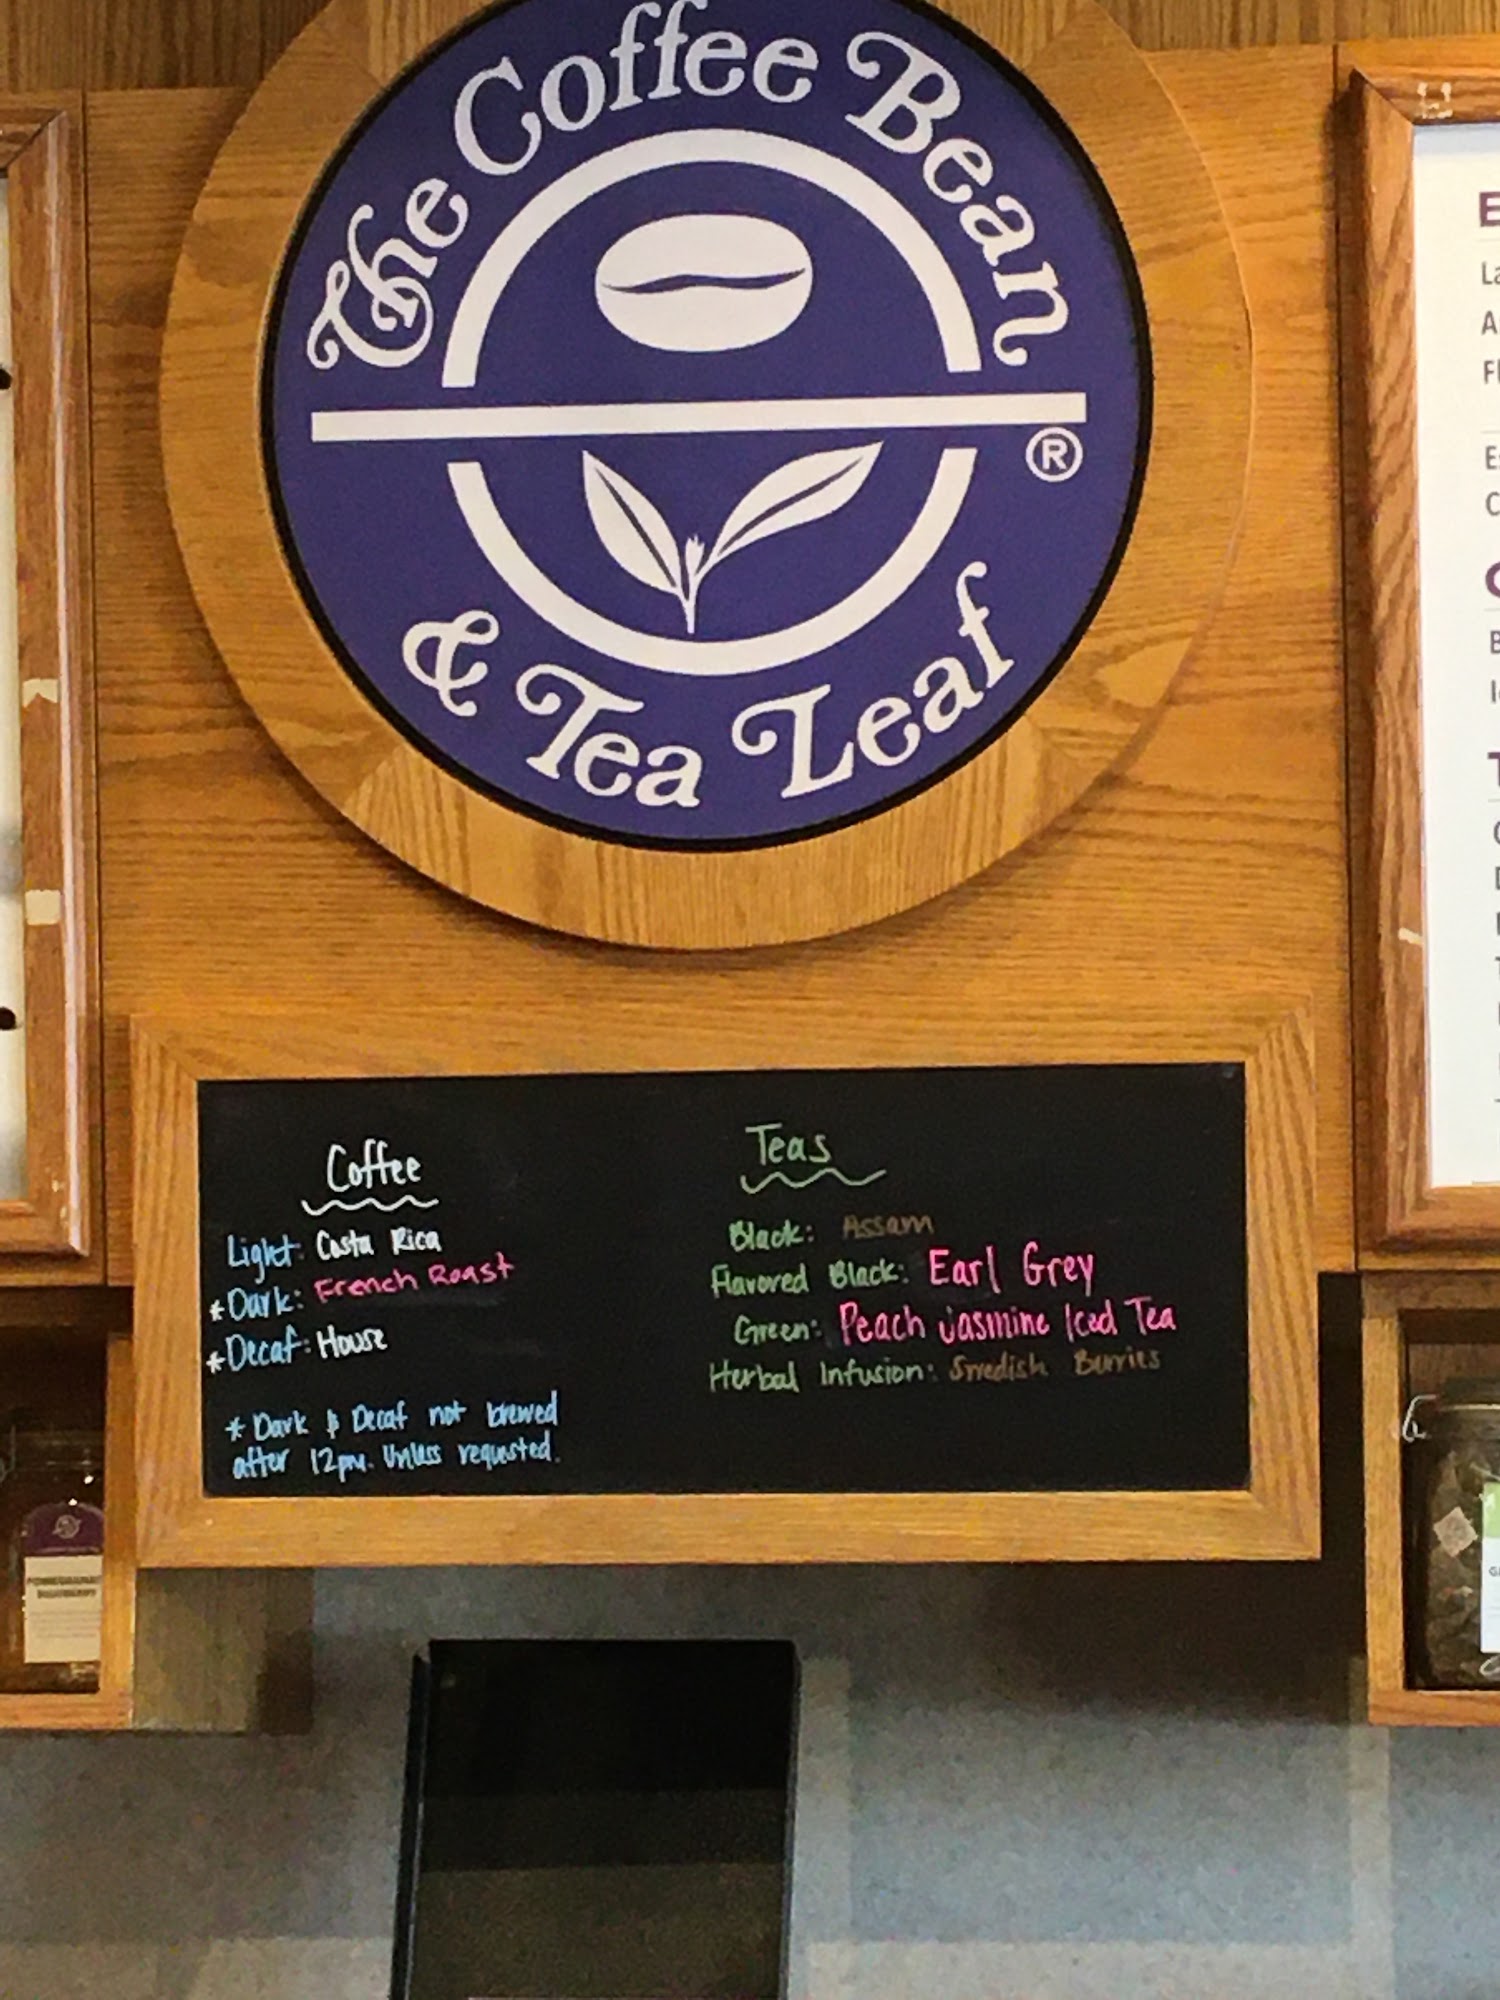 The Coffee Bean
®
& Tea Leaf
Coffee
Light: Costa Rica
*Dark: French Roast
*Decaf: House
* Dark & Decaf not brewed
after 12pm. Unless requested.
Teas
Black: Assam
Flavored Black: Earl Grey
Green: Peach Jasmine Iced Tea
Herbal Infusion: Swedish Berries